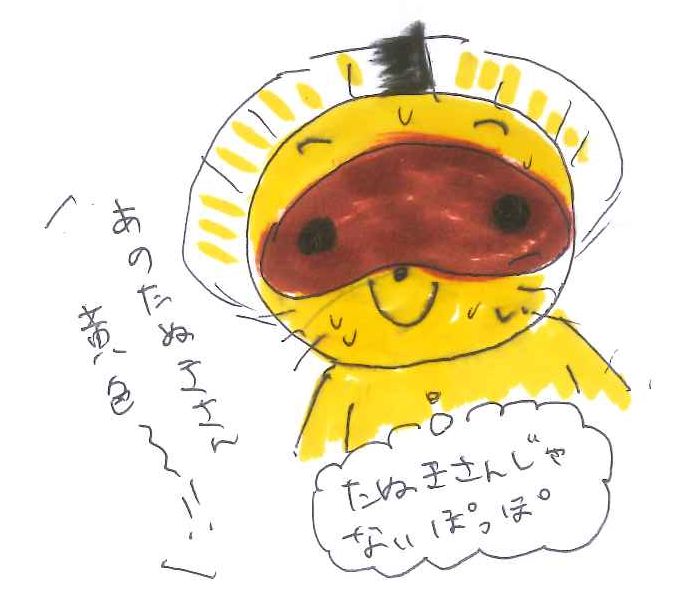 「あのたぬ子さん
黄色〜!!」
たぬ子さんじゃ
ないぽっぽ